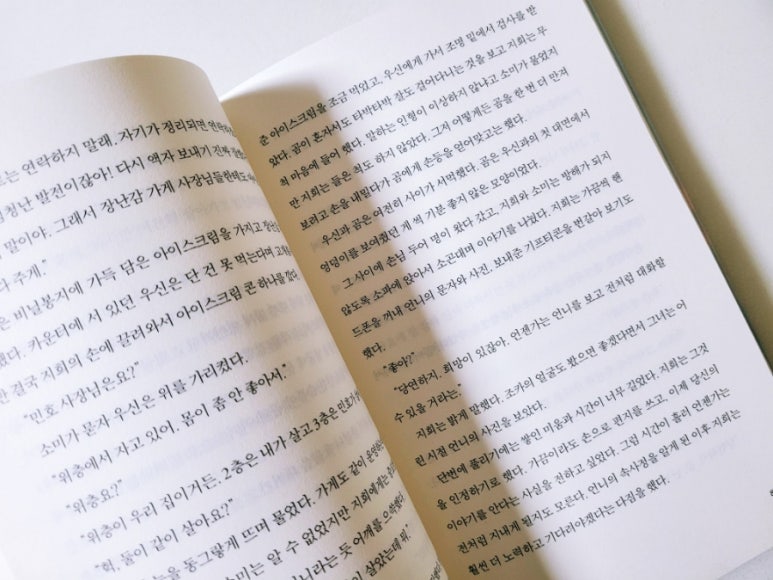 는 연락하지 말래. 자기가 정리되면 연락
청난 발전이잖아! 다시 액자 보내기 전
말이야. 그래서 장난감 가게 사장님들한테도
다 주게."
은 비닐봉지에 가득 담은 아이스크림을 가지고
했다. 카운터에 서 있던 우신은 단 건 못 먹는다며
한 결국 지희의 손에 끌려와서 아이스크림 콘 하나를 깠다.
"민호 사장님은요?"
소미가 묻자 우신은 위를 가리켰다.
"위층에서 자고 있어. 몸이 좀 안 좋아서."
"위층요?"
"위층이 우리 집이거든. 2층은 내가 살고 3층은 민호가
"헉, 둘이 같이 살아요?"
눈을 동그랗게 뜨며 물었다. 가게도 같이
소미는 알 수 없었지만 지희에게는
니라는 듯 어깨를 으쓱했다.
살았는데 뭐."
준 아이스크림을 조금 먹었고, 우신에게 가서 조명 밑에서 검사를 받
았다. 곰이 혼자서도 타박타박 잘도 걸어다니는 것을 보고 지희는 무
척 마음에 들어 했다. 말하는 인형이 이상하지 않냐고 소미가 물었지
만 지희는 들은 척도 하지 않았다. 그저 어떻게든 곰을 한 번 더 만져
보려고 손을 내밀다가 곰에게 손등을 얻어맞고는 했다.
우신과 곰은 여전히 사이가 서먹했다. 곰은 우신과의 첫 대면에서
엉덩이를 보여줬던 게 썩 기분 좋지 않은 모양이었다.
그 사이에 손님 두어 명이 왔다 갔고, 지희와 소미는 방해가 되지
않도록 소파에 앉아서 소곤대며 이야기를 나눴다. 지희는 가끔씩 핸
드폰을 꺼내 언니의 문자와 사진, 보내준 기프티콘을 번갈아 보기도
했다.
"좋아?"
"당연하지. 희망이 있잖아. 언젠가는 언니를 보고 전처럼 대화할
수 있을 거라는."
지희는 밝게 말했다. 조카의 얼굴도 봤으면 좋겠다면서 그녀는 어
린 시절 언니의 사진을 보았다.
단번에 풀리기에는 쌓인 미움과 시간이 너무 길었다. 지희는 그것
을 인정하기로 했다. 가끔이라도 손으로 편지를 쓰고, 이제 당신의
이야기를 안다는 사실을 전하고 싶었다. 그럼 시간이 흘러 언젠가는
전처럼 지내게 될지도 모른다. 언니의 속사정을 알게 된 이후 지희는
훨씬 더 노력하고 기다려야겠다는 다짐을 했다.